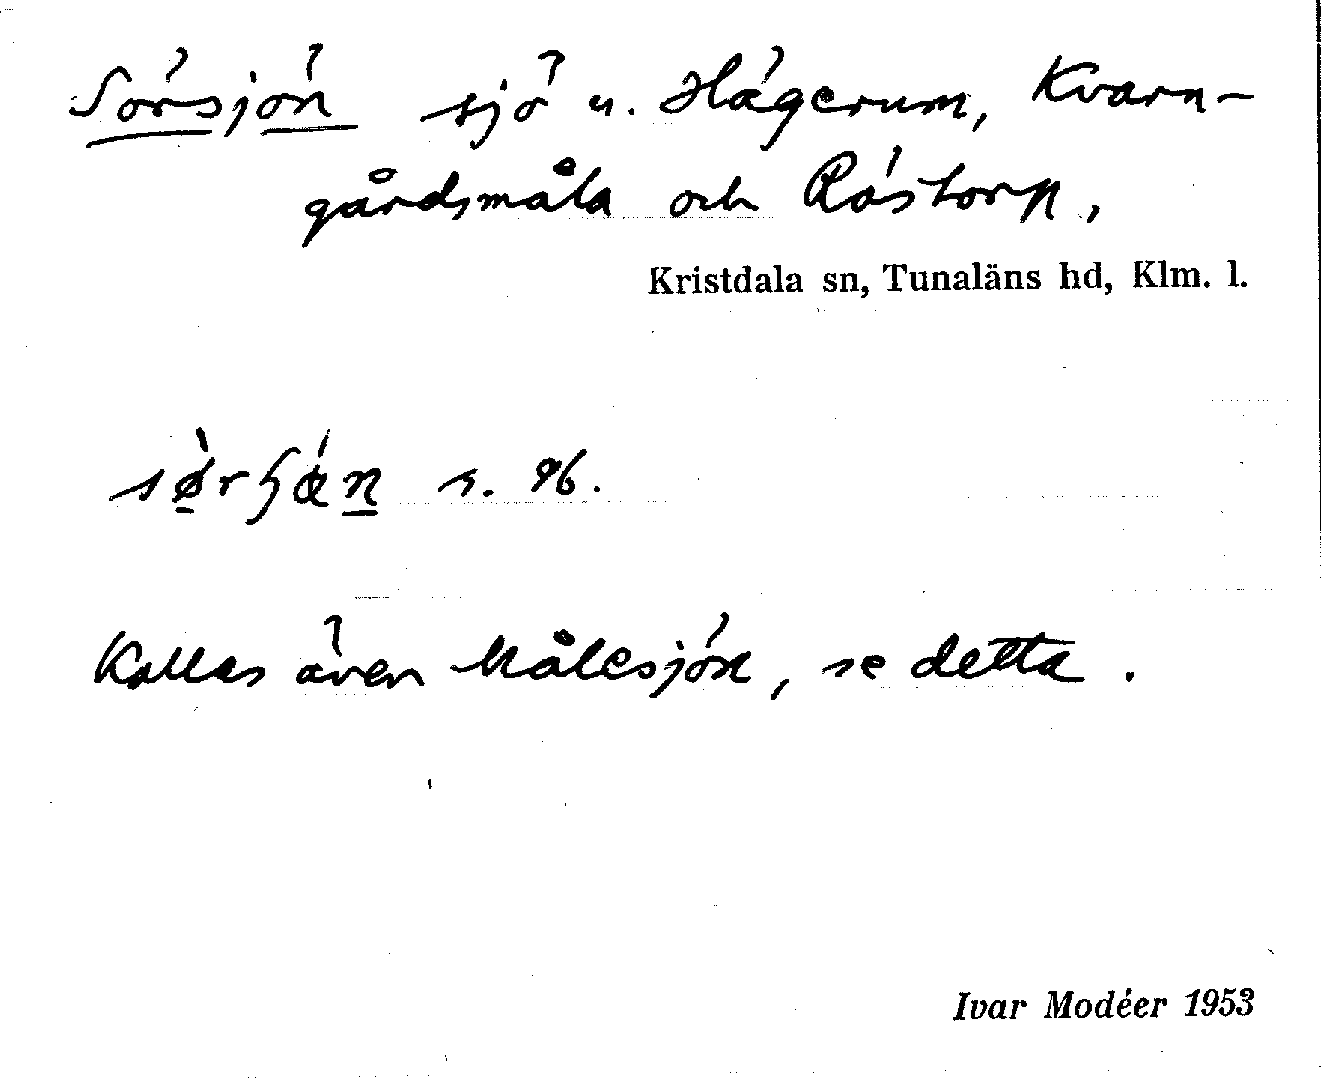 Sörsjön sjö n. Hägerum, Kvarn-
gårdsmåla och Röstorp,
Kristdala sn, Tunaläns hd, Klm. l.
s. 96.
Kallas även Målesjön, se detta.
Ivar Modéer 1953